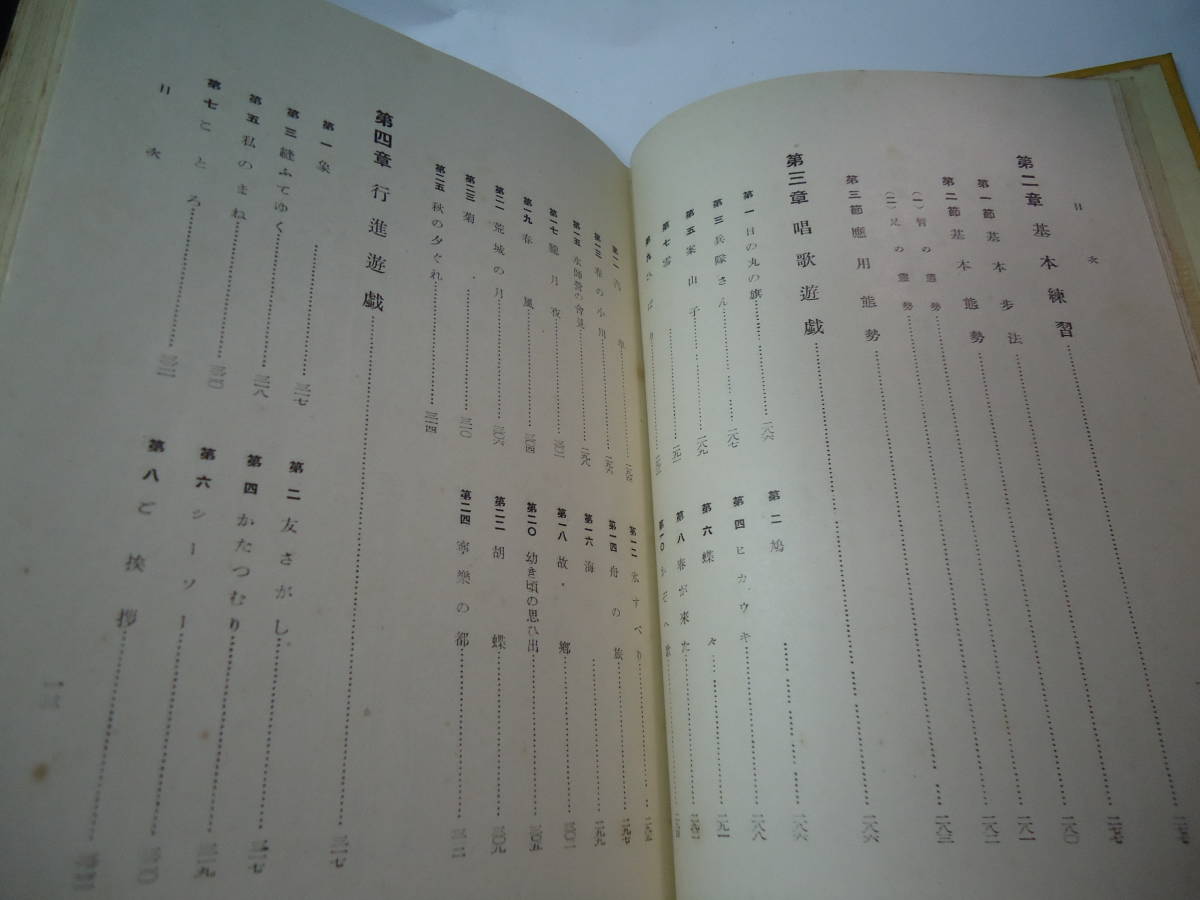 目次
第二章 基本練習 一八〇
第一節 基本步法 一八一
第二節 基本態勢 一八二
(一) 臂の態勢
(二) 足の態勢 一八三
第三節 應用態勢 一八六
第三章 唱歌遊戯 一八六
第一 日の丸の旗 一八六
第二 鳩 一八八
第三 兵隊さん 一八七
第四 ヒカウキ
第五 案山子 一八九
第六 蝶々 一九一
第七 雪 一九一
第八 春が来た
第九 ひばり
第一〇 かぞへ歌
第一一
第一二 氷すべり 一九五
第一三 春の小川 一九六
第一四 舟の旅 一九七
第一五 水師營の會見 一九八
第一六 海 一九九
第一七 朧月夜
第一八 故郷
第一九 春風
第二〇 幼き頃の思ひ出 三〇五
第二一 荒城の月 三〇六
第二二 胡蝶 三〇九
第二三 菊 三一〇
第二四 寧樂の都 三一二
第二五 秋の夕ぐれ 三一四
第四章 行進遊戯 三一七
第一 象 三一七
第二 友さがし 三一七
第三 縫ふてゆく 三一八
第四 かたつむり
第五 私のまね
第六 シーソー 三一九
第七 ところ
第八 ご挨拶
目次
一三